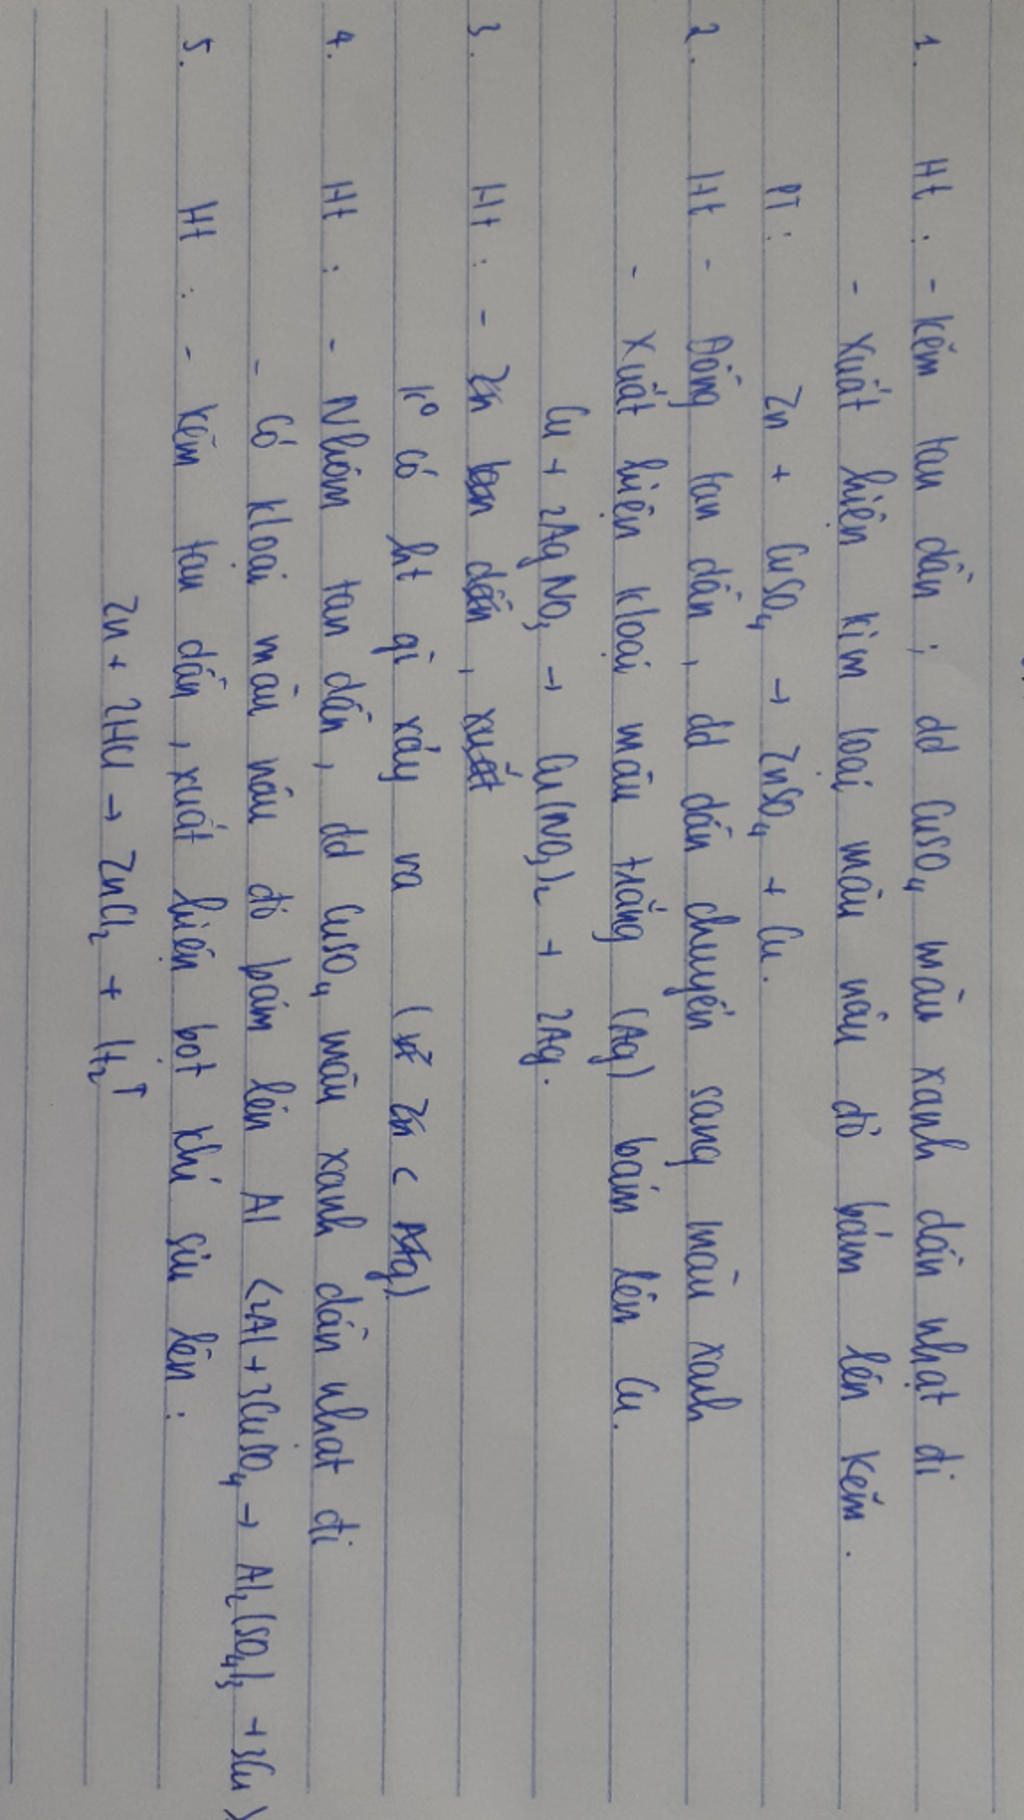 1. Ht : - Kẽm tan dần ; dd CuSO₄ màu xanh dần nhạt đi
- Xuất hiện kim loại màu nâu đỏ bám lên kẽm.
PT : Zn + CuSO₄ → ZnSO₄ + Cu.
2. Ht - Đồng tan dần, dd dần chuyển sang màu xanh
- Xuất hiện kloại màu trắng (Ag) bám lên Cu.
Cu + 2AgNO₃ → Cu(NO₃)₂ + 2Ag.
3. Ht : - Zn tan dần, xuất
K° có ht gì xảy ra ( Zn < Mg)
4. Ht : - Nhôm tan dần, dd CuSO₄ màu xanh dần nhạt đi
- Có kloại màu nâu đỏ bám lên Al (2Al + 3CuSO₄ → Al₂(SO₄)₃ + 3Cu)
5. Ht : - kẽm tan dần, xuất hiện bọt khí sủi lên.
Zn + 2HCl → ZnCl₂ + H₂↑